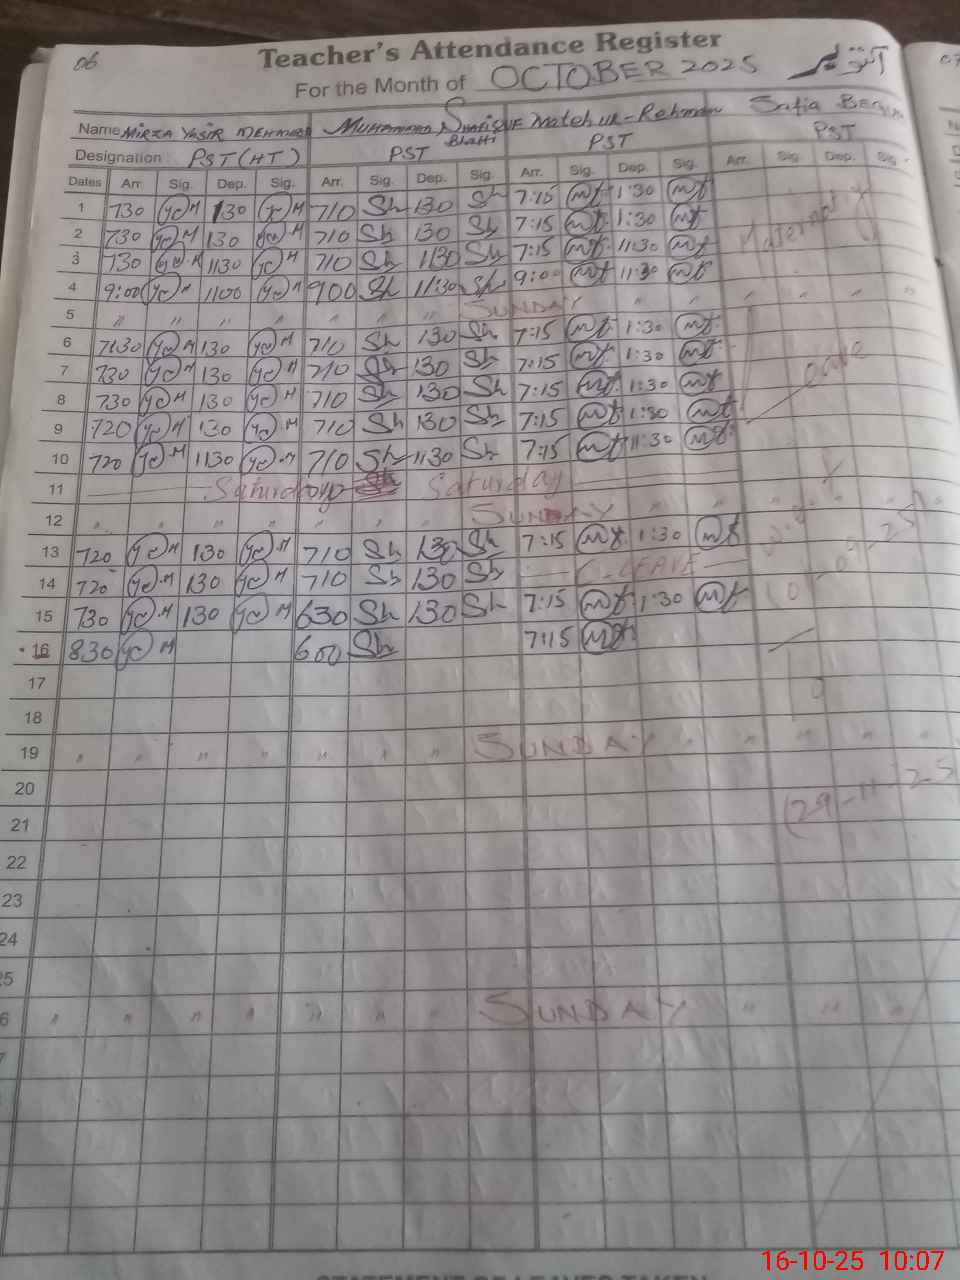 06
Teacher's Attendance Register
For the Month of OCTOBER 2025 اکتوبر
Name MIRZA YASIR MEHMOOD Muhammad Shafique Bhatti Match ur-Rehman Safia Begum
Designation PST (HT) PST PST PST
Dates Arr. Sig. Dep. Sig. Arr. Sig. Dep. Sig. Arr. Sig. Dep. Sig. Arr. Sig. Dep. Sig.
1 730 130 710 Sh 130 Sh 7:15 mt 1:30 mt
2 730 130 710 Sh 130 Sh 7:15 mt 1:30 mt Maternity
3 730 1130 710 Sh 1130 Sh 7:15 mt 11:30 mt
4 9:00 1100 900 Sh 11:30 Sh 9:00 mt 11:30 mt
5 " " " " " " " SUNDAY " " " "
6 7:30 130 710 Sh 130 Sh 7:15 mt 1:30 mt
7 730 130 710 Sh 130 Sh 7:15 mt 1:30 mt Leave
8 730 130 710 Sh 130 Sh 7:15 mt 1:30 mt
9 720 130 710 Sh 130 Sh 7:15 mt 1:30 mt
10 720 1130 710 Sh 1130 Sh 7:15 mt 11:30 mt
11 Saturday Sh Saturday
12 " " " " " " " SUNDAY " " " " "
13 720 130 710 Sh 130 Sh 7:15 mt 1:30 mt
14 720 130 710 Sh 130 Sh C. LEAVE
15 730 130 630 Sh 130 Sh 7:15 mt 1:30 mt
16 830 600 Sh 7:15 mt
17
18
19 " " " " " " " SUNDAY " " " " "
20
21 (29-11-25
22
23
24
25
6 " " " " " " " SUNDAY " " "
7
16-10-25 10:07